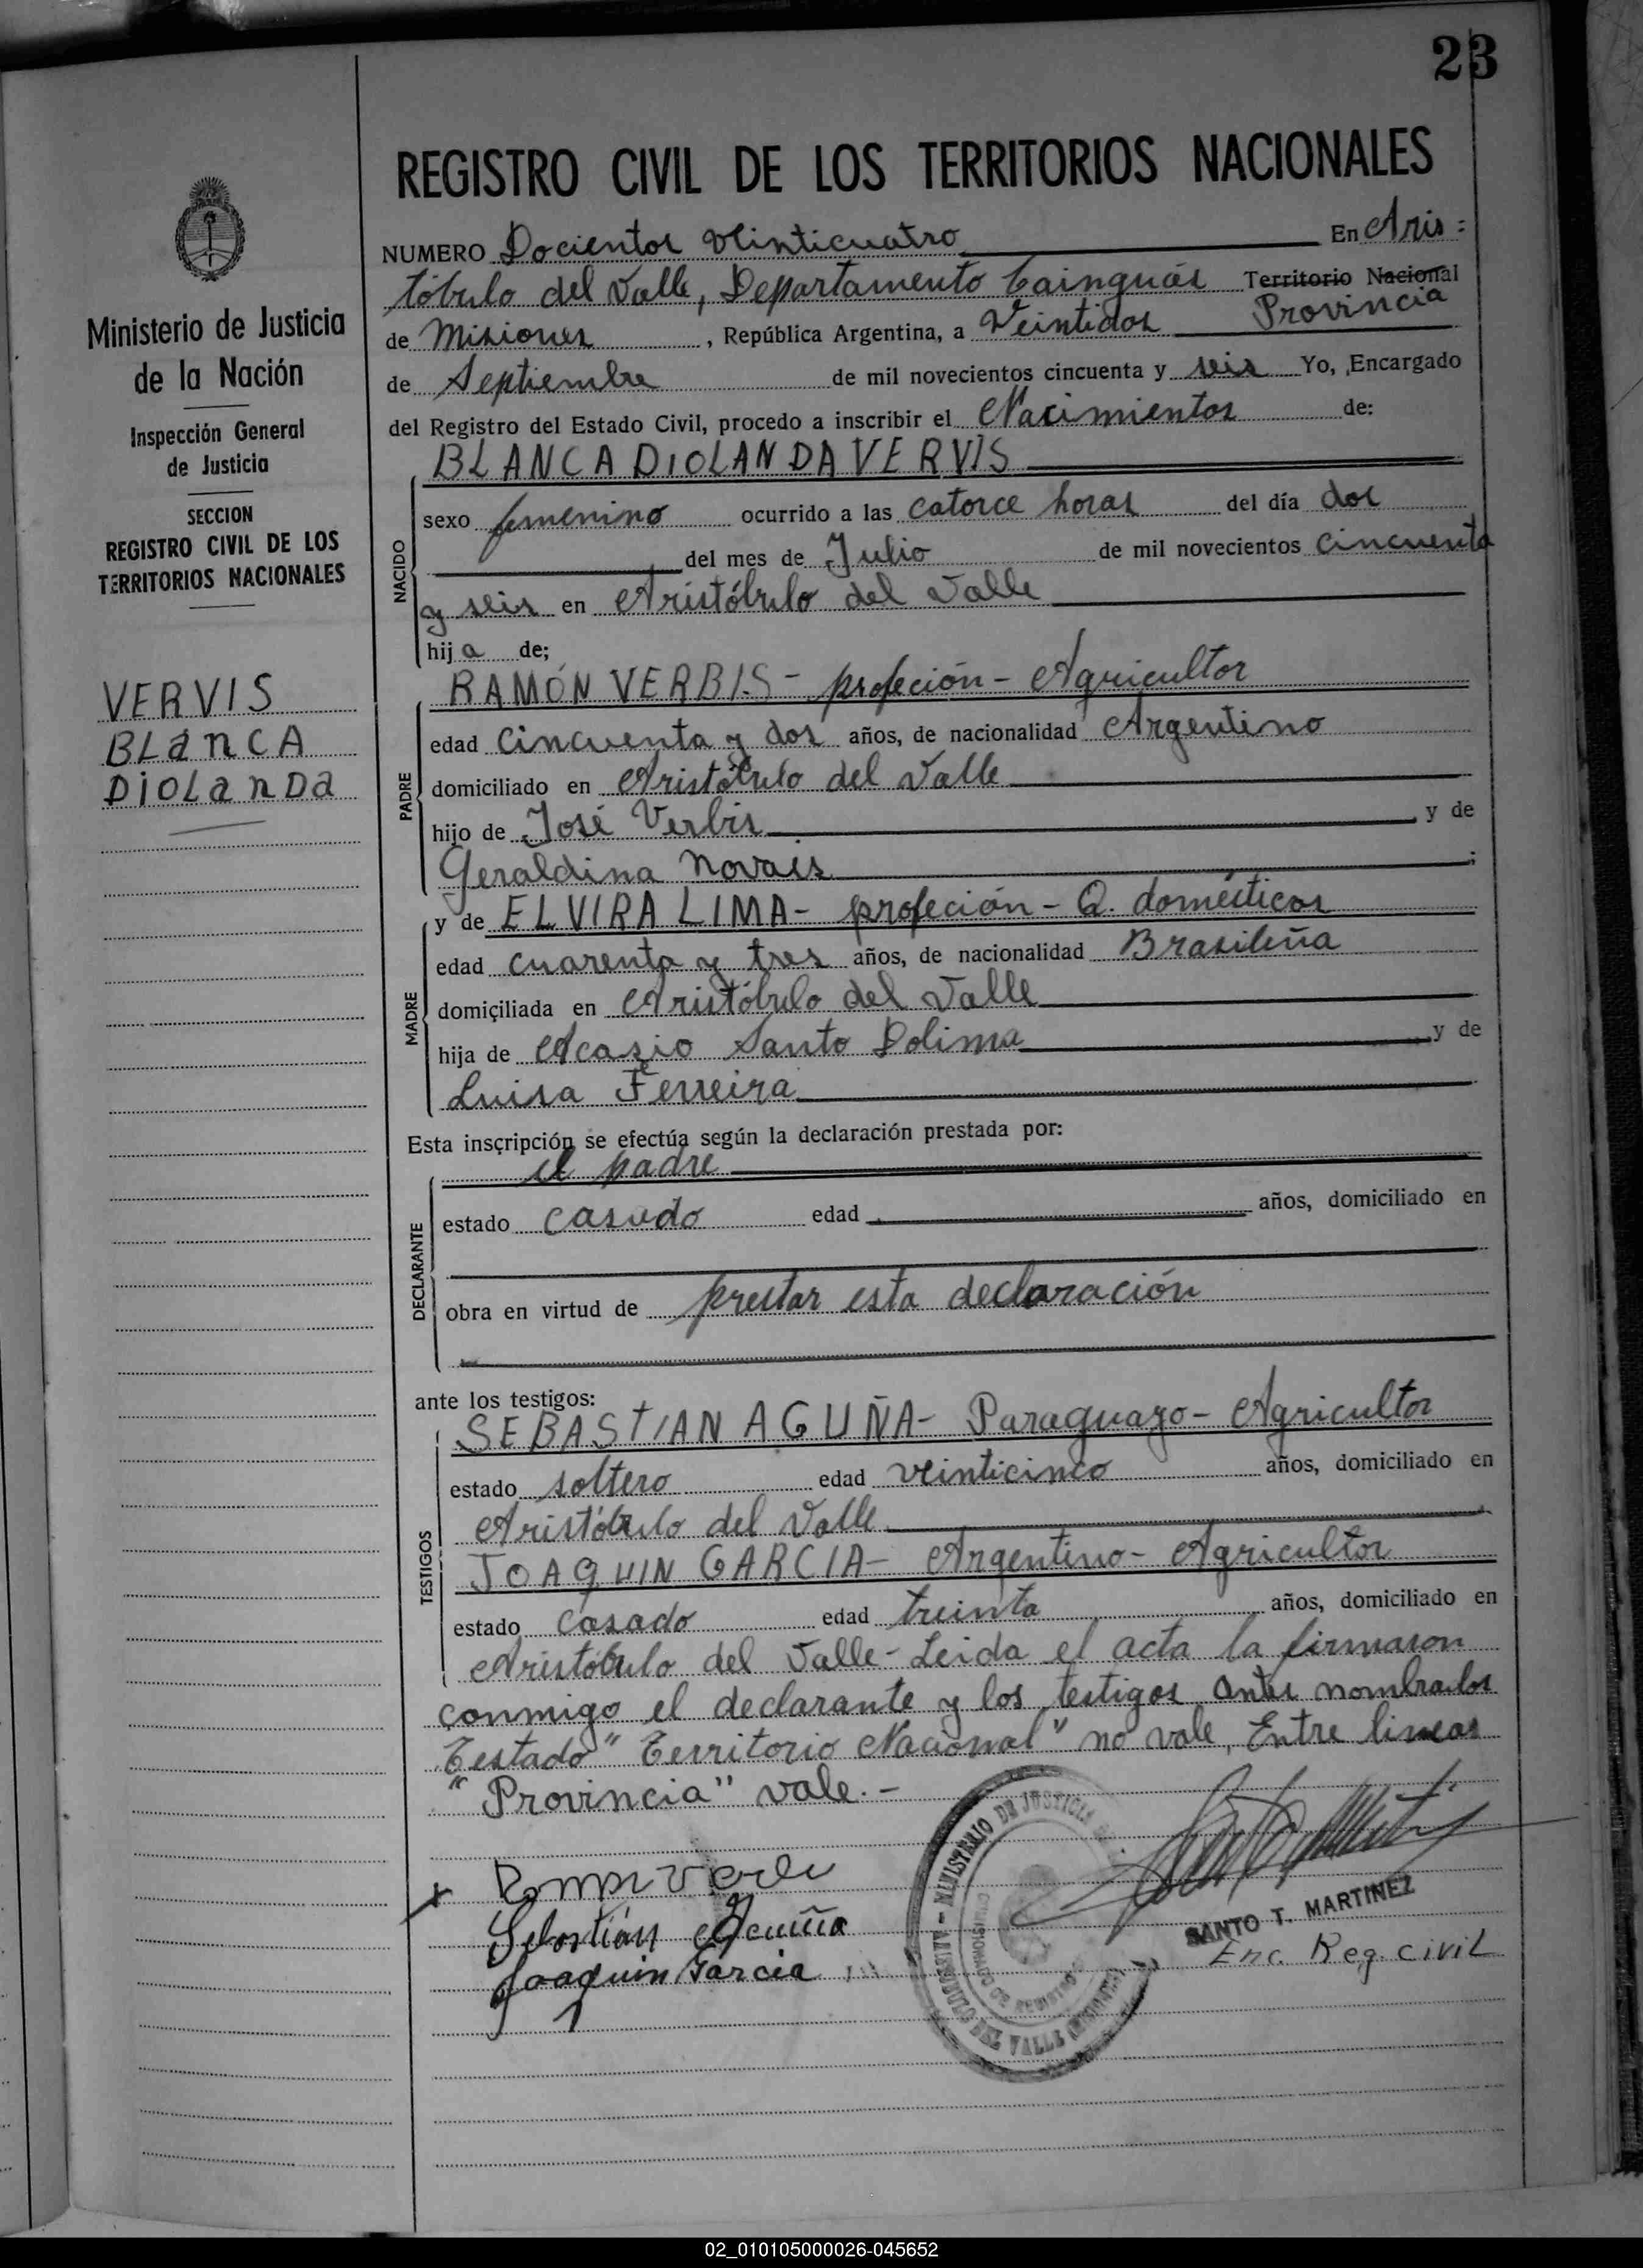 23
REGISTRO CIVIL DE LOS TERRITORIOS NACIONALES
Ministerio de Justicia
de la Nación
Inspección General
de Justicia
SECCION
REGISTRO CIVIL DE LOS
TERRITORIOS NACIONALES
VERVIS
BLANCA
DIOLANDA
NUMERO Docientos veinticuatro En Aris=
tóbulo del Valle, Departamento Cainguás Territorio Nacional
Provincia
de Misiones, República Argentina, a Veintidos
de Septiembre de mil novecientos cincuenta y seis Yo, Encargado
del Registro del Estado Civil, procedo a inscribir el Nacimientos de:
BLANCA DIOLANDA VERVIS
NACIDO
sexo femenino ocurrido a las catorce horas del día dos
del mes de Julio de mil novecientos cincuenta
y seis en Aristóbulo del Valle
hija de;
RAMÓN VERBIS - profeción - Agricultor
PADRE
edad cincuenta y dos años, de nacionalidad Argentino
domiciliado en Aristóbulo del Valle
hijo de José Verbis y de
Geraldina Novais;
y de ELVIRA LIMA - profeción - Q. domésticos
MADRE
edad cuarenta y tres años, de nacionalidad Brasileña
domiciliada en Aristóbulo del Valle
hija de Acasio Santo Dolima y de
Luisa Ferreira
Esta inscripción se efectúa según la declaración prestada por:
el padre
DECLARANTE
estado casado edad años, domiciliado en
obra en virtud de prestar esta declaración
ante los testigos:
SEBASTIAN AGUÑA - Paraguayo - Agricultor
TESTIGOS
estado soltero edad veinticinco años, domiciliado en
Aristóbulo del Valle
JOAQUIN GARCIA - Argentino - Agricultor
estado casado edad treinta años, domiciliado en
Aristóbulo del Valle - Leida el acta la firmaron
conmigo el declarante y los testigos antes nombrados
Testado "Territorio Nacional" no vale, Entre lineas
"Provincia" vale.-
Sebastián Acuña
Joaquin Garcia
MINISTERIO DE JUSTICIA
ARISTOBULO DEL VALLE (MISIONES)
SANTO T. MARTINEZ
Enc. Reg. civil
02_010105000026-045652